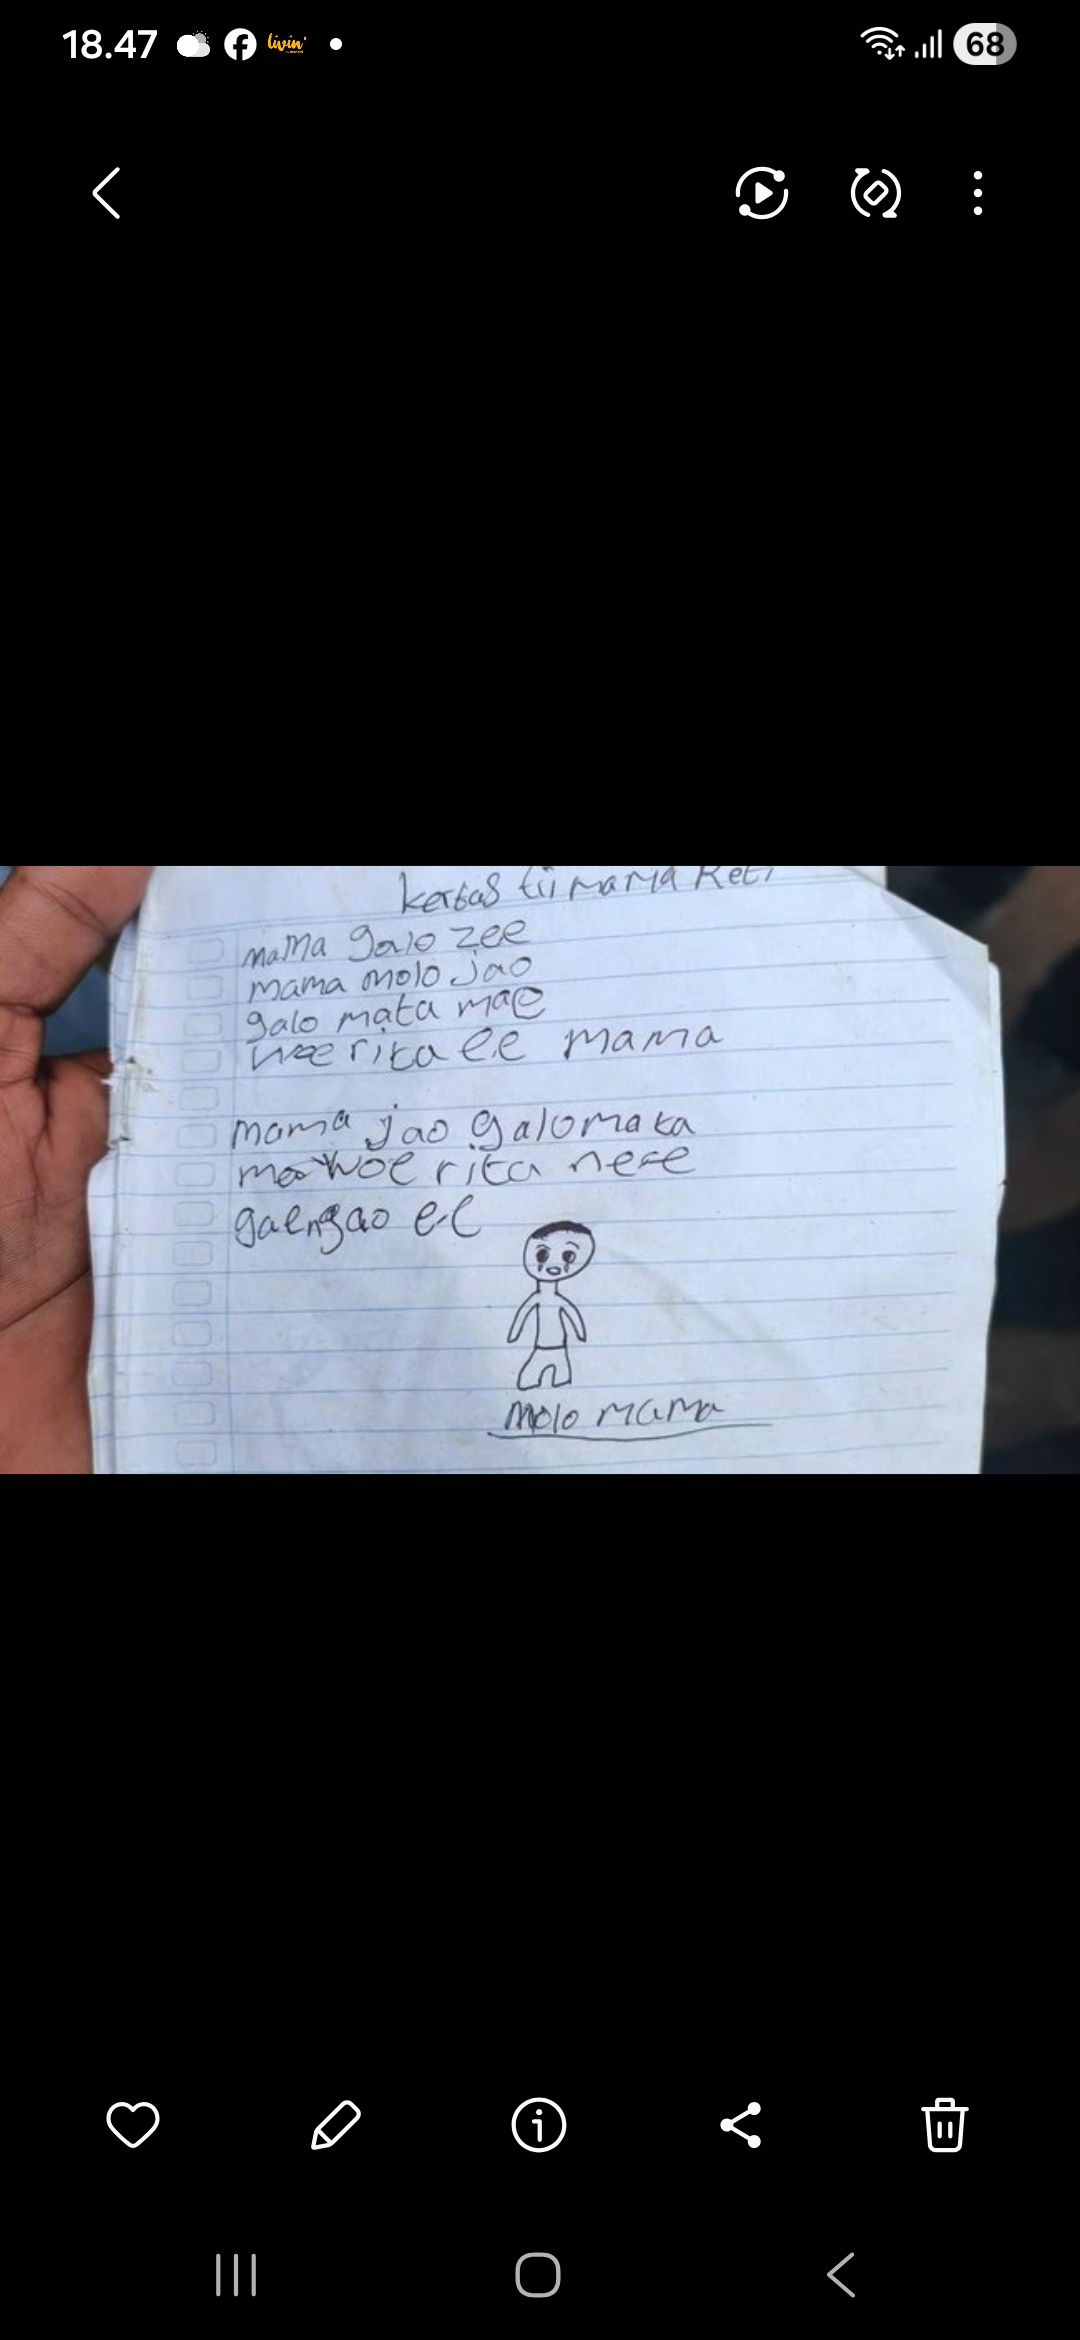 18.47
livin'
68
kertas tii mama Reti
mama galo zee
mama molo jao
galo mata mae
woe rita ee mama
mama jao galo mata
mae woe rita ne'e
gae ngao ee
molo mama